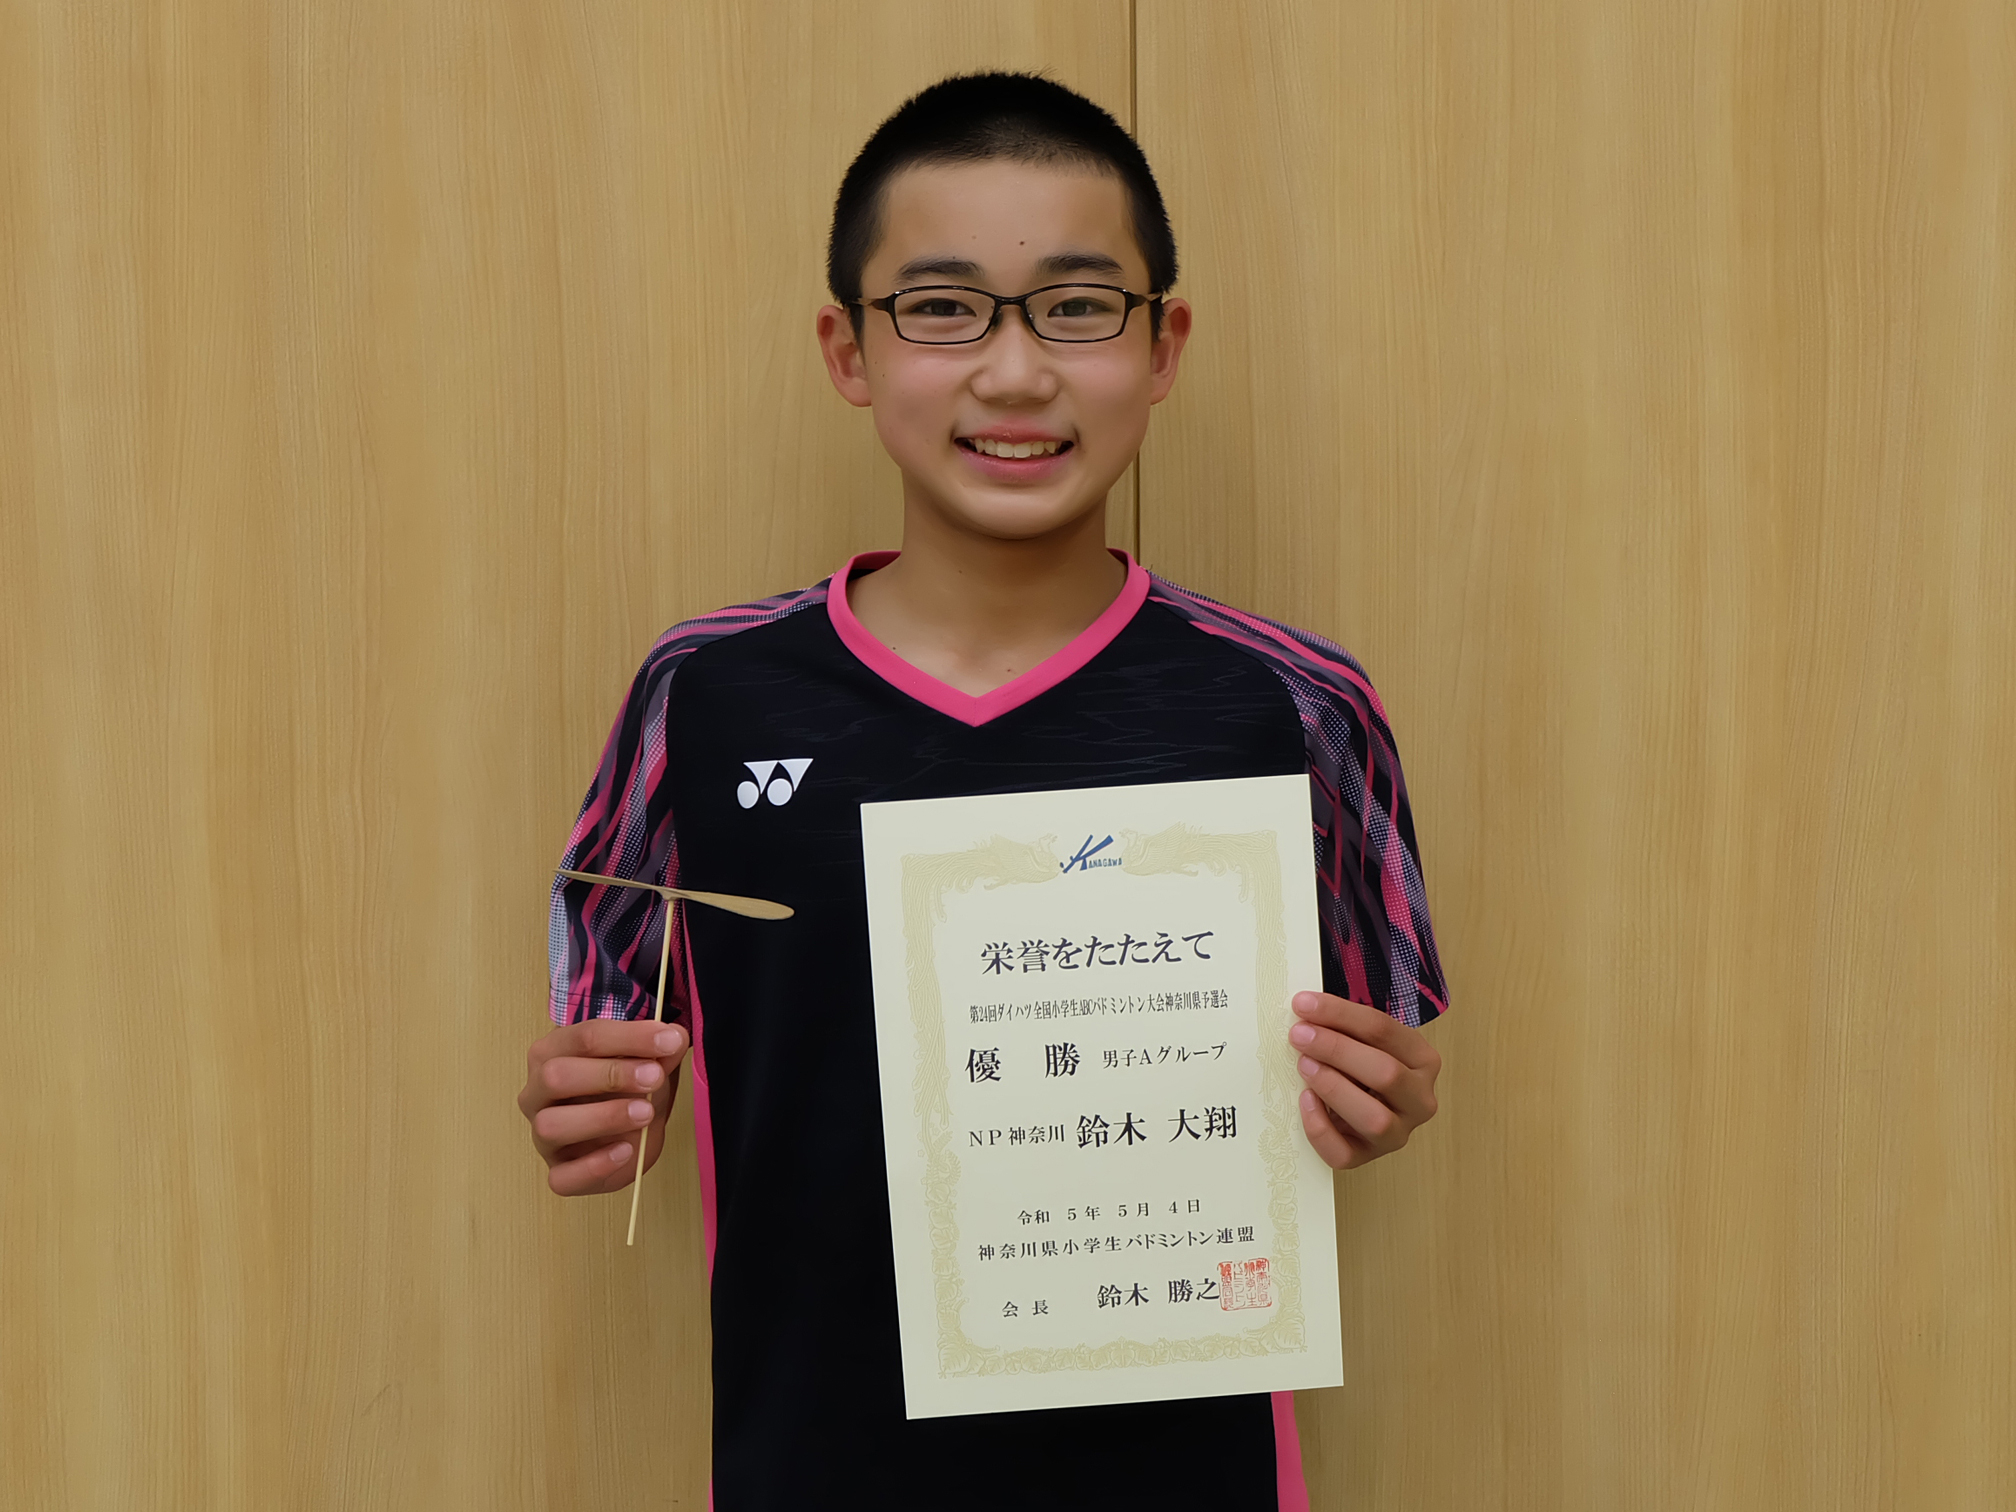 KANAGAWA
栄誉をたたえて
第24回ダイハツ全国小学生ABCバドミントン大会神奈川県予選会
優 勝 男子Aグループ
NP神奈川 鈴木 大翔
令和 5年 5月 4日
神奈川県小学生バドミントン連盟
会長 鈴木 勝之